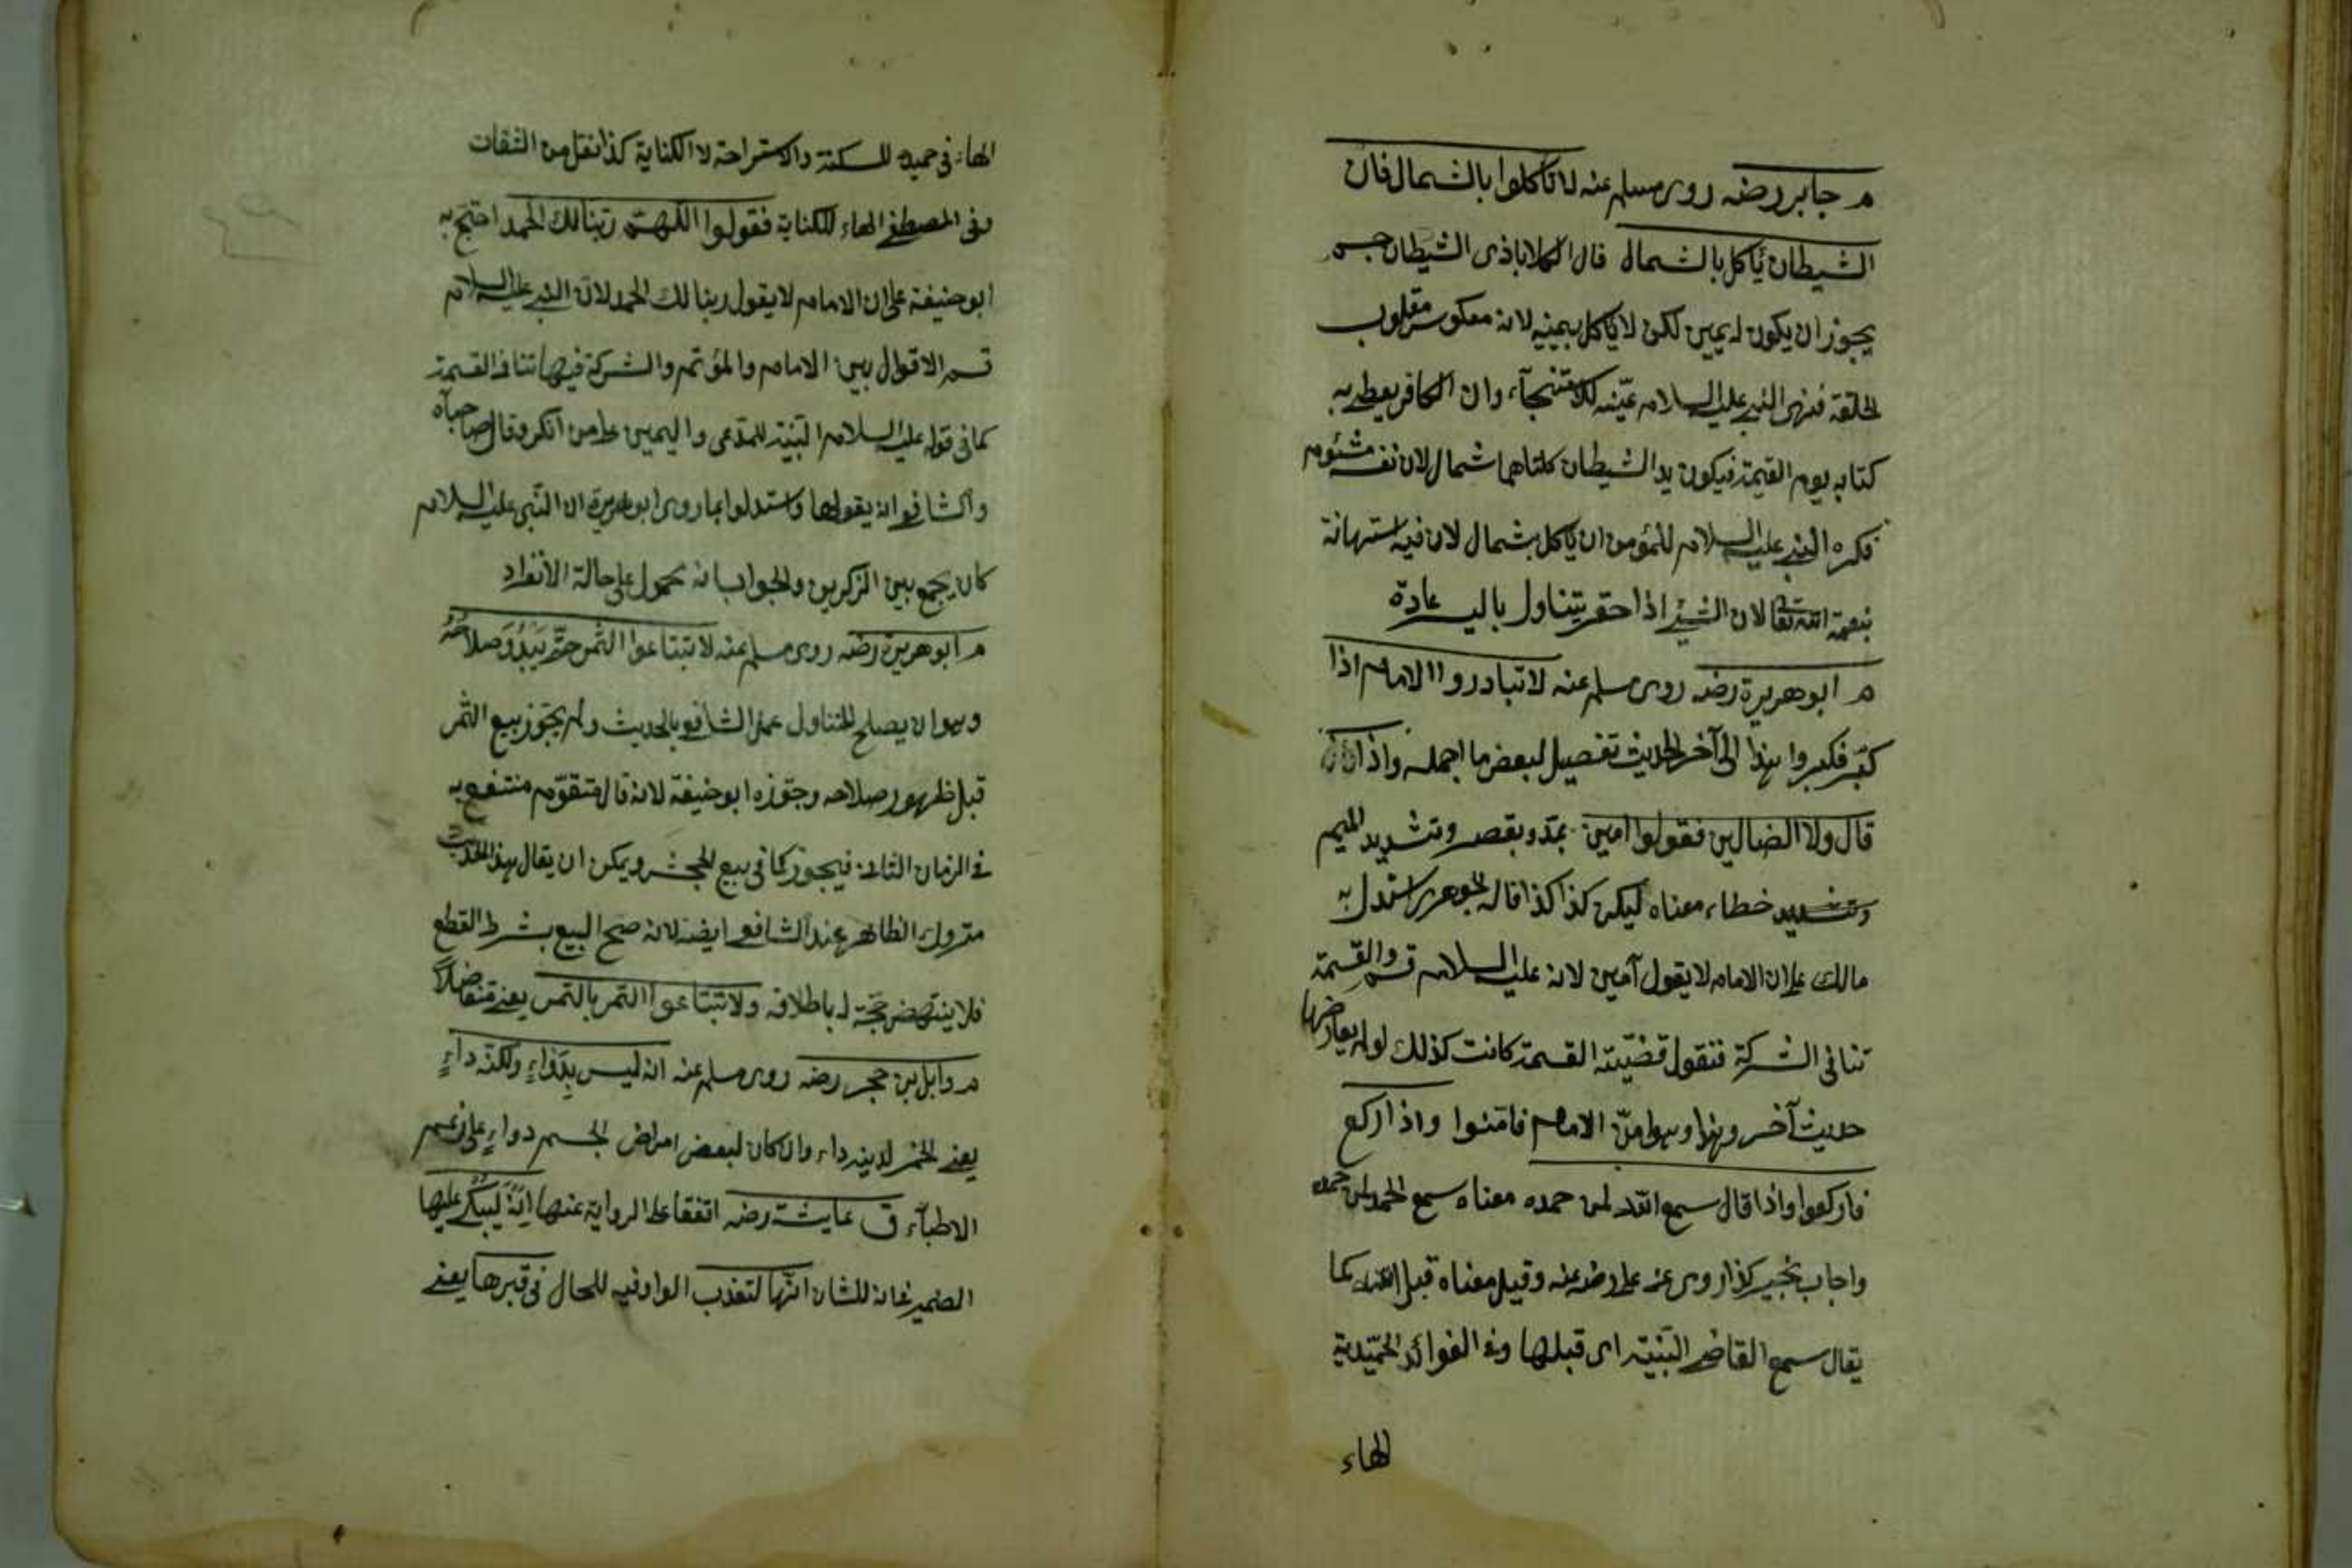 م جابر رضه روى مسلم عنه لا تأكلوا بالشمال فان
الشيطان يأكل بالشمال قال الكلاباذى الشيطان جسم
يجوز ان يكون له يمين لكن لا يأكل بيمينه لانه معكوس مقلوب
الخلقة فنهى النبي عليه السلام عينه للاستنجاء وان الكافر يعطى به
كتابه يوم القيمة فيكون يد الشيطان كلتاهما شمال لان نفسه مشئوم
فكره النبي عليه السلام للمؤمن ان يأكل بشمال لان فيه استهانة
بنعمة الله تعالى لان الشيء اذا احتقر يتناول باليسر عادة
م ابو هريرة رضه روى مسلم عنه لا تبادروا الامام اذا
كبّر فكبروا هذا الى آخر الحديث تفصيل لبعض ما اجمله واذا
قال ولا الضالين فقولوا امين بمد وبقصر وتشديد الميم
وتشديد خطاء معناه ليكن كذا كذا قاله الجوهرى استدل به
مالك على ان الامام لا يقول آمين لانه عليه السلام قسم والقسمة
تنافى الشركة فنقول قضيّته القسمة كانت كذلك لو لم يعارضها
حديث آخر وهذا وهو امّن الامام فامّنوا واذا ركع
فاركعوا واذا قال سمع الله لمن حمده معناه سمع الحمد لمن حمده
واجاب بخير كذا روى عن على رضه عنه وقيل معناه قبل الله كما
يقال سمع القاضى البيّنة اى قبلها وفى الفوائد الحميّدية
الهاء
الهاء فى حميده للسكتة والاستراحة لا الكناية كذا نقل من الثقات
وفى المصطفى الهاء للكناية فقولوا اللهم ربنا لك الحمد احتج به
ابو حنيفة على ان الامام لا يقول ربنا لك الحمد لان النبي عليه السلام
قسم الاقوال بين الامام والمؤتم والشركة فيها تنافى القسمة
كما فى قوله عليه السلام البيّنة للمدعى واليمين على من انكر وقال صاحباه
والشافعى انه يقولها واستدلوا بما روى ابو هريرة ان النبى عليه السلام
كان يجمع بين الذكرين والجواب انه محمول على حالة الانفراد
م ابو هريرة رضه روى مسلم عنه لا تبتاعوا الثمر حتى يَبْدُوَ صلاحُهُ
وهو ان يصلح للتناول عمل الشافعى بالحديث ولم يجوّز بيع الثمر
قبل ظهور صلاحه وجوّزه ابو حنيفة لانه مال متقوّم منتفع به
فى الزمان الثانى فيجوز كما فى بيع الجحش ويمكن ان يقال هذا الحديث
متروك الظاهر عند الشافعى ايضا لانه صح البيع بشرط القطع
فلا ينتهض حجّة له باطلاقه ولا تبتاعوا التمر بالتمر يعنى متفاضلاً
م وايل بن حجر رضه روى مسلم عنه انه ليس بِدَوَاءٍ ولكنّه داءٍ
يعنى الخمر لدينه داء وان كان لبعض امراض الجسم دواءٍ على زعم
الاطباء ق عايشة رضه اتفقا على الرواية عنها انّهُ لَيُبْكَى عليها
الضمير فانه للشان انّها لتعذب الواو فيه للحال فى قبرها يعنى